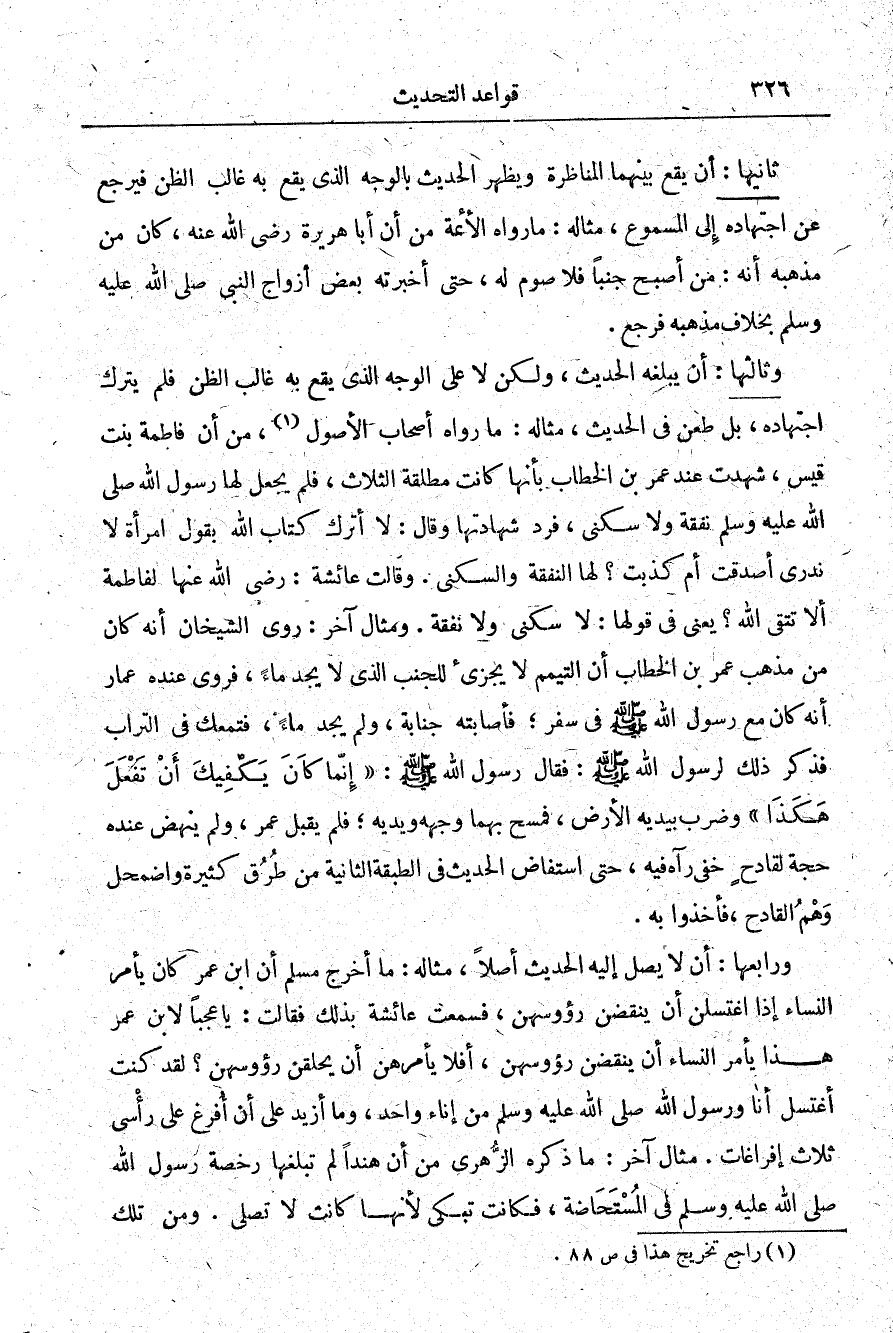 ٣٢٦
قواعد التحديث
ثانيها : أن يقع بينهما المناظرة ويظهر الحديث بالوجه الذى يقع به غالب الظن فيرجع
عن اجتهاده إلى المسموع ، مثاله : مارواه الأئمة من أن أبا هريرة رضى الله عنه ، كان من
مذهبه أنه : من أصبح جنباً فلا صوم له ، حتى أخبرته بعض أزواج النبى صلى الله عليه
وسلم بخلاف مذهبه فرجع .
وثالثها : أن يبلغه الحديث ، ولكن لا على الوجه الذى يقع به غالب الظن فلم يترك
اجتهاده ، بل طعن فى الحديث ، مثاله : ما رواه أصحاب الأصول (١) ، من أن فاطمة بنت
قيس ، شهدت عند عمر بن الخطاب بأنها كانت مطلقة الثلاث ، فلم يجعل لها رسول الله صلى
الله عليه وسلم نفقة ولا سكنى ، فرد شهادتها وقال : لا أترك كتاب الله بقول امرأة لا
ندرى أصدقت أم كذبت ؟ لها النفقة والسكنى . وقالت عائشة : رضى الله عنها لفاطمة
ألا تتقى الله ؟ يعنى فى قولها : لا سكنى ولا نفقة . ومثال آخر : روى الشيخان أنه كان
من مذهب عمر بن الخطاب أن التيمم لا يجزىء للجنب الذى لا يجد ماءً ، فروى عنده عمار
أنه كان مع رسول الله ﷺ فى سفر ؛ فأصابته جنابة ، ولم يجد ماءً ، فتمعك فى التراب
فذكر ذلك لرسول الله ﷺ : فقال رسول الله ﷺ : « إِنَّما كاَنَ يَكْفِيكَ أَنْ تَفْعَلَ
هَكَذَا » وضرب بيديه الأرض ، فمسح بهما وجهه ويديه ؛ فلم يقبل عمر ، ولم ينهض عنده
حجة لقادحٍ خفى رآه فيه ، حتى استفاض الحديث فى الطبقة الثانية من طُرُق كثيرة واضمحل
وَهْمُ القادح ، فأخذوا به .
ورابعها : أن لا يصل إليه الحديث أصلاً ، مثاله : ما أخرج مسلم أن ابن عمر كان يأمر
النساء إذا اغتسلن أن ينقضن رؤوسهن ، فسمعت عائشة بذلك فقالت : ياعجباً لابن عمر
هذا يأمر النساء أن ينقضن رؤوسهن ، أفلا يأمرهن أن يحلقن رؤوسهن ؟ لقد كنت
أغتسل أنا ورسول الله صلى الله عليه وسلم من إناء واحد ، وما أزيد على أن أُفرغ على رأْسى
ثلاث إفراغات . مثال آخر : ما ذكره الزُّهرى من أن هنداً لم تبلغها رخصة رسول الله
صلى الله عليه وسلم فى المُسْتَحَاضة ، فكانت تبكى لأنها كانت لا تصلى . ومن تلك
(١) راجع تخريج هذا فى ص ٨٨ .